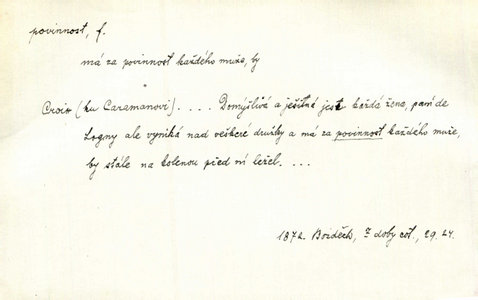 povinnost, f.
má za povinnost každého muže, by
Croix (ku Caramanovi). . . . Domýšlivá a ješitná jest každá žena, paní de
Logny ale vyniká nad veškeré družky a má za povinnost každého muže,
by stále na kolenou před ní ležel. . . .
1872. Bozděch, Z doby cot., 29. 24.